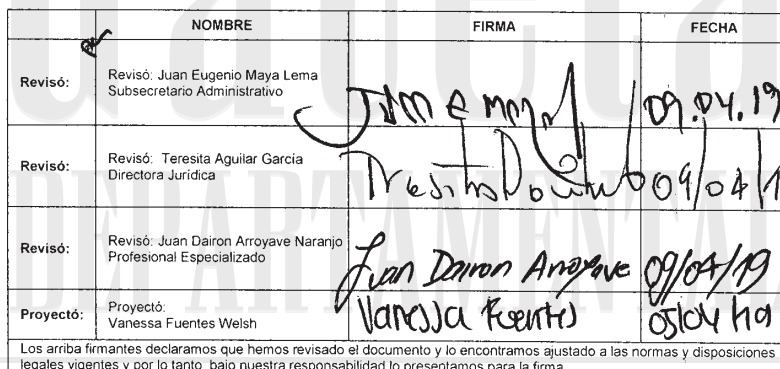 NOMBRE FIRMA FECHA
Revisó: Revisó: Juan Eugenio Maya Lema
Subsecretario Administrativo
09.04.19
Revisó: Revisó: Teresita Aguilar García
Directora Jurídica
09/04/1
Revisó: Revisó: Juan Dairon Arroyave Naranjo
Profesional Especializado
Juan Dairon Arroyave 09/04/19
Proyectó: Proyectó:
Vanessa Fuentes Welsh
Vanessa Fuentes
Los arriba firmantes declaramos que hemos revisado el documento y lo encontramos ajustado a las normas y disposiciones
legales vigentes y por lo tanto, bajo nuestra responsabilidad lo presentamos para la firma.
DEPARTAMENTAL